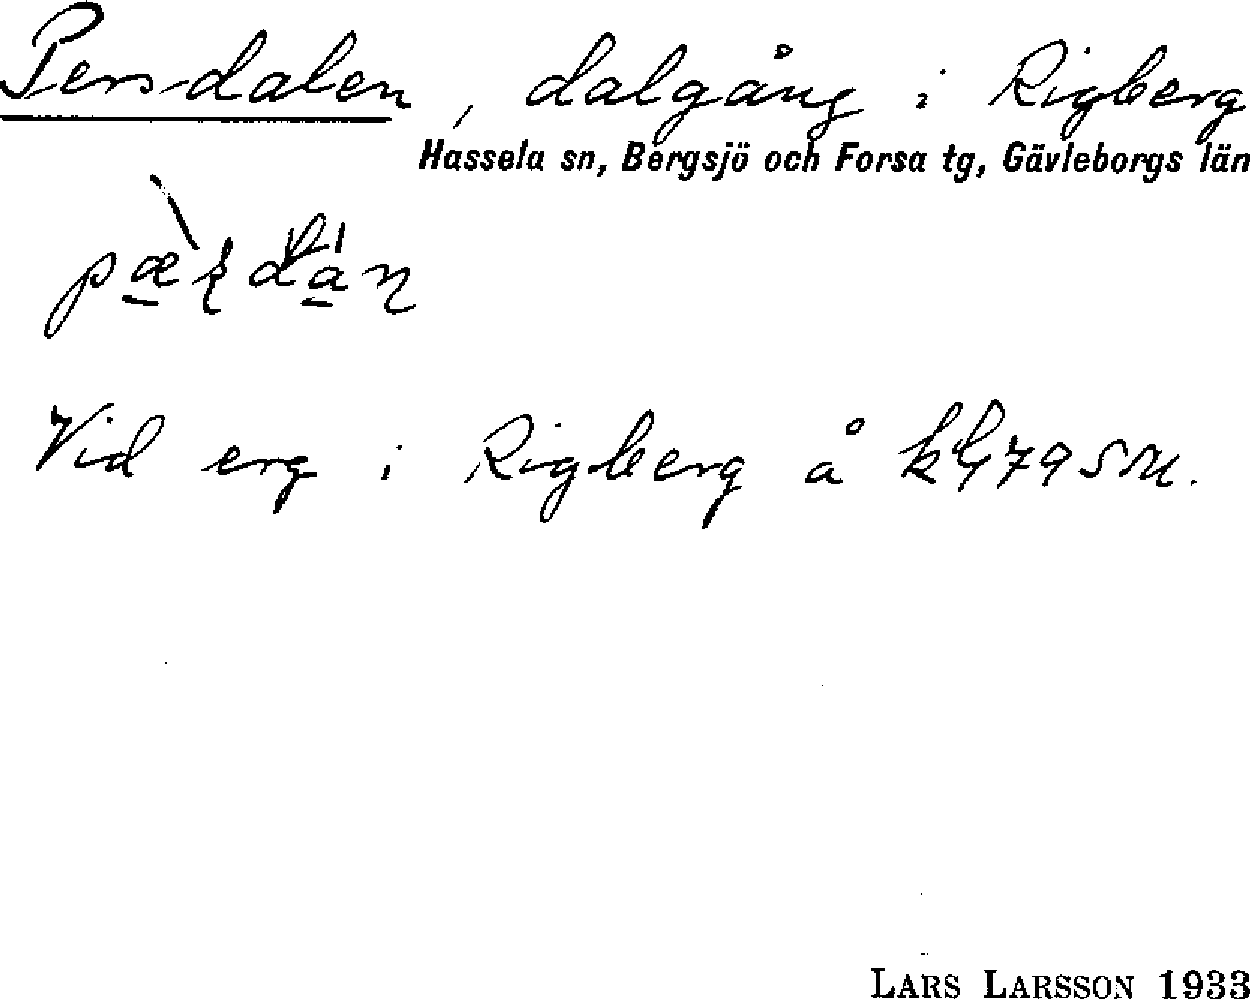 Persdalen, dalgång i Rigberg
Hassela sn, Bergsjö och Forsa tg, Gävleborgs län
Vid erg i Rigberg å
LARS LARSSON 1933